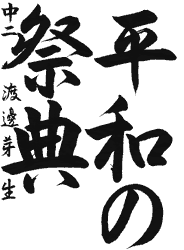 平和の
祭典
中二 渡邊芽生